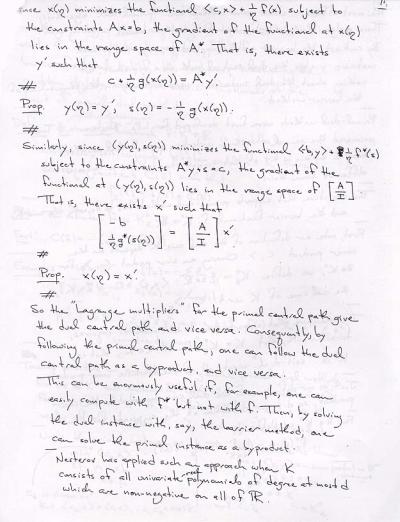 since x(η) minimizes the functional <c,x> + 1/η f(x) subject to
the constraints Ax=b, the gradient of the functional at x(η)
lies in the range space of A*. That is, there exists
y' such that
c + 1/η g(x(η)) = A*y'.
#
Prop. y(η) = y', s(η) = -1/η g(x(η)).
#
Similarly, since (y(η), s(η)) minimizes the functional <b,y> + 1/η f*(s)
subject to the constraints A*y+s=c, the gradient of the
functional at (y(η), s(η)) lies in the range space of [A / I].
That is, there exists x' such that
[-b / 1/η g*(s(η))] = [A / I] x'.
#
Prop. x(η) = x'.
#
So the "Lagrange multipliers" for the primal central path give
the dual central path and vice versa. Consequently, by
following the primal central path, one can follow the dual
central path as a byproduct, and vice versa.
This can be enormously useful if, for example, one can
easily compute with f* but not with f. Then, by solving
the dual instance with, say, the barrier method, one
can solve the primal instance as a byproduct.
Nesterov has applied such an approach when K
consists of all univariate real polynomials of degree at most d
which are nonnegative on all of ℝ.